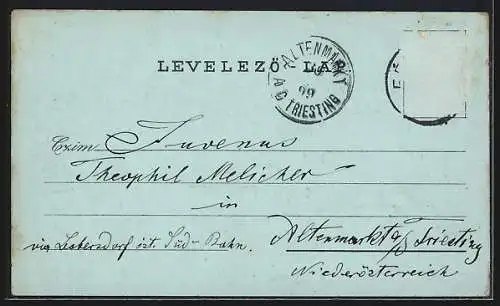 LEVELEZŐ-LAP
ALTENMARKT
99
A/D TRIESTING
Czim: Juvenus
Theophil Melicher
in
via Leobersdorf öst. Süd-Bahn. Altenmarkt a/ Triesting
Niederösterreich